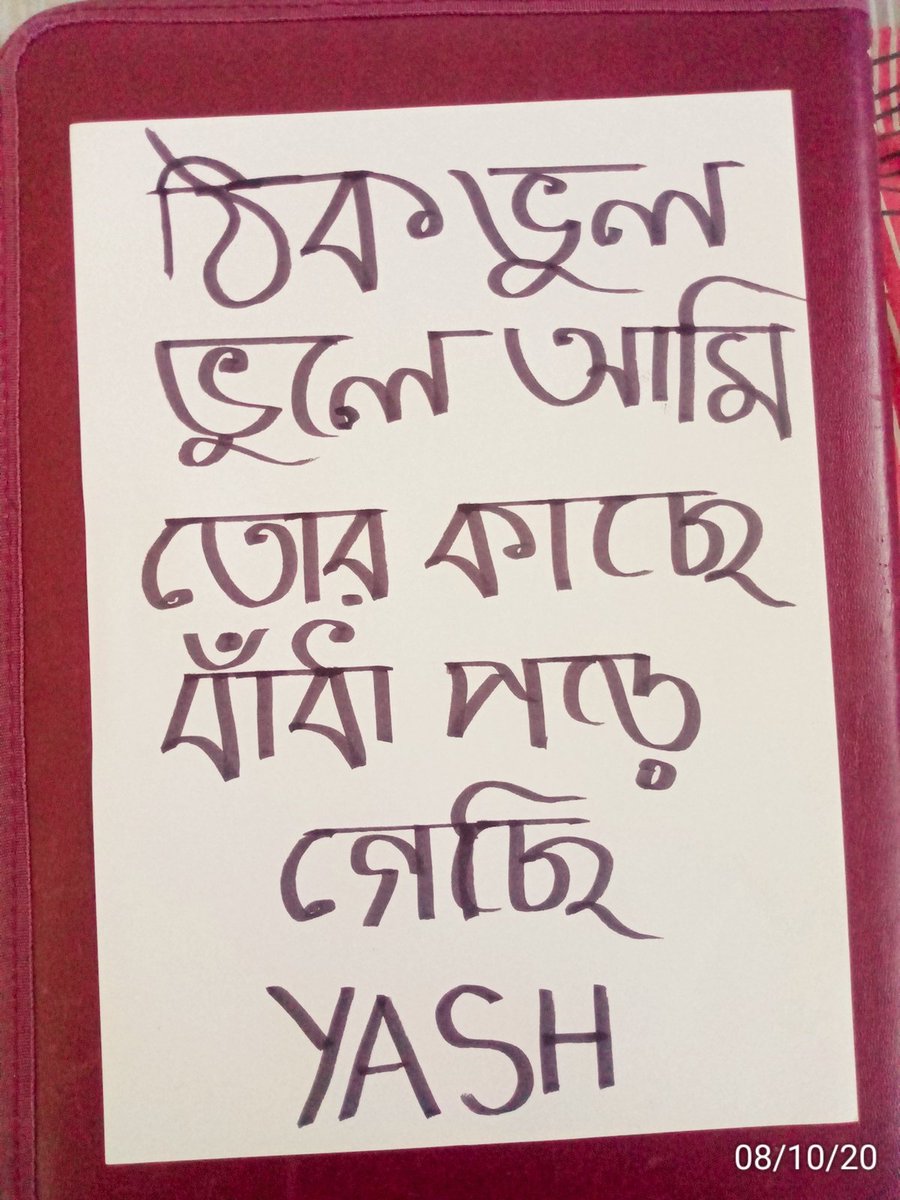 ঠিক ভুল
ভুলে আমি
তোর কাছে
বাঁধা পড়ে
গেছি
YASH
08/10/20